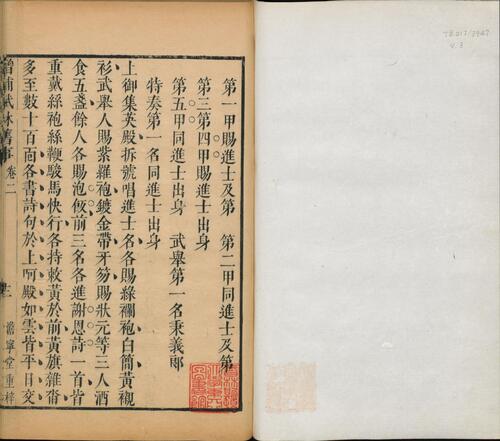 第一甲賜進士及第　第二甲同進士及第
第三第四甲賜進士出身
第五甲同進士出身　武舉第一名秉義郎
特奏第一名同進士出身
上御集英殿拆號唱進士名各賜綠襴袍白簡黃襯
衫武舉人賜紫羅袍鍍金帶牙笏賜狀元等三人酒
食五盞餘人各賜泡飯前三名各進謝恩詩一首皆
重戴絲袍絲鞭駿馬快行各持敕黃於前黃旗雜沓
多至數十百面各書詩句於上呵殿如雲皆平日交
增補武林舊事 卷二
澹寧堂重梓
TB.017/3967
v.3